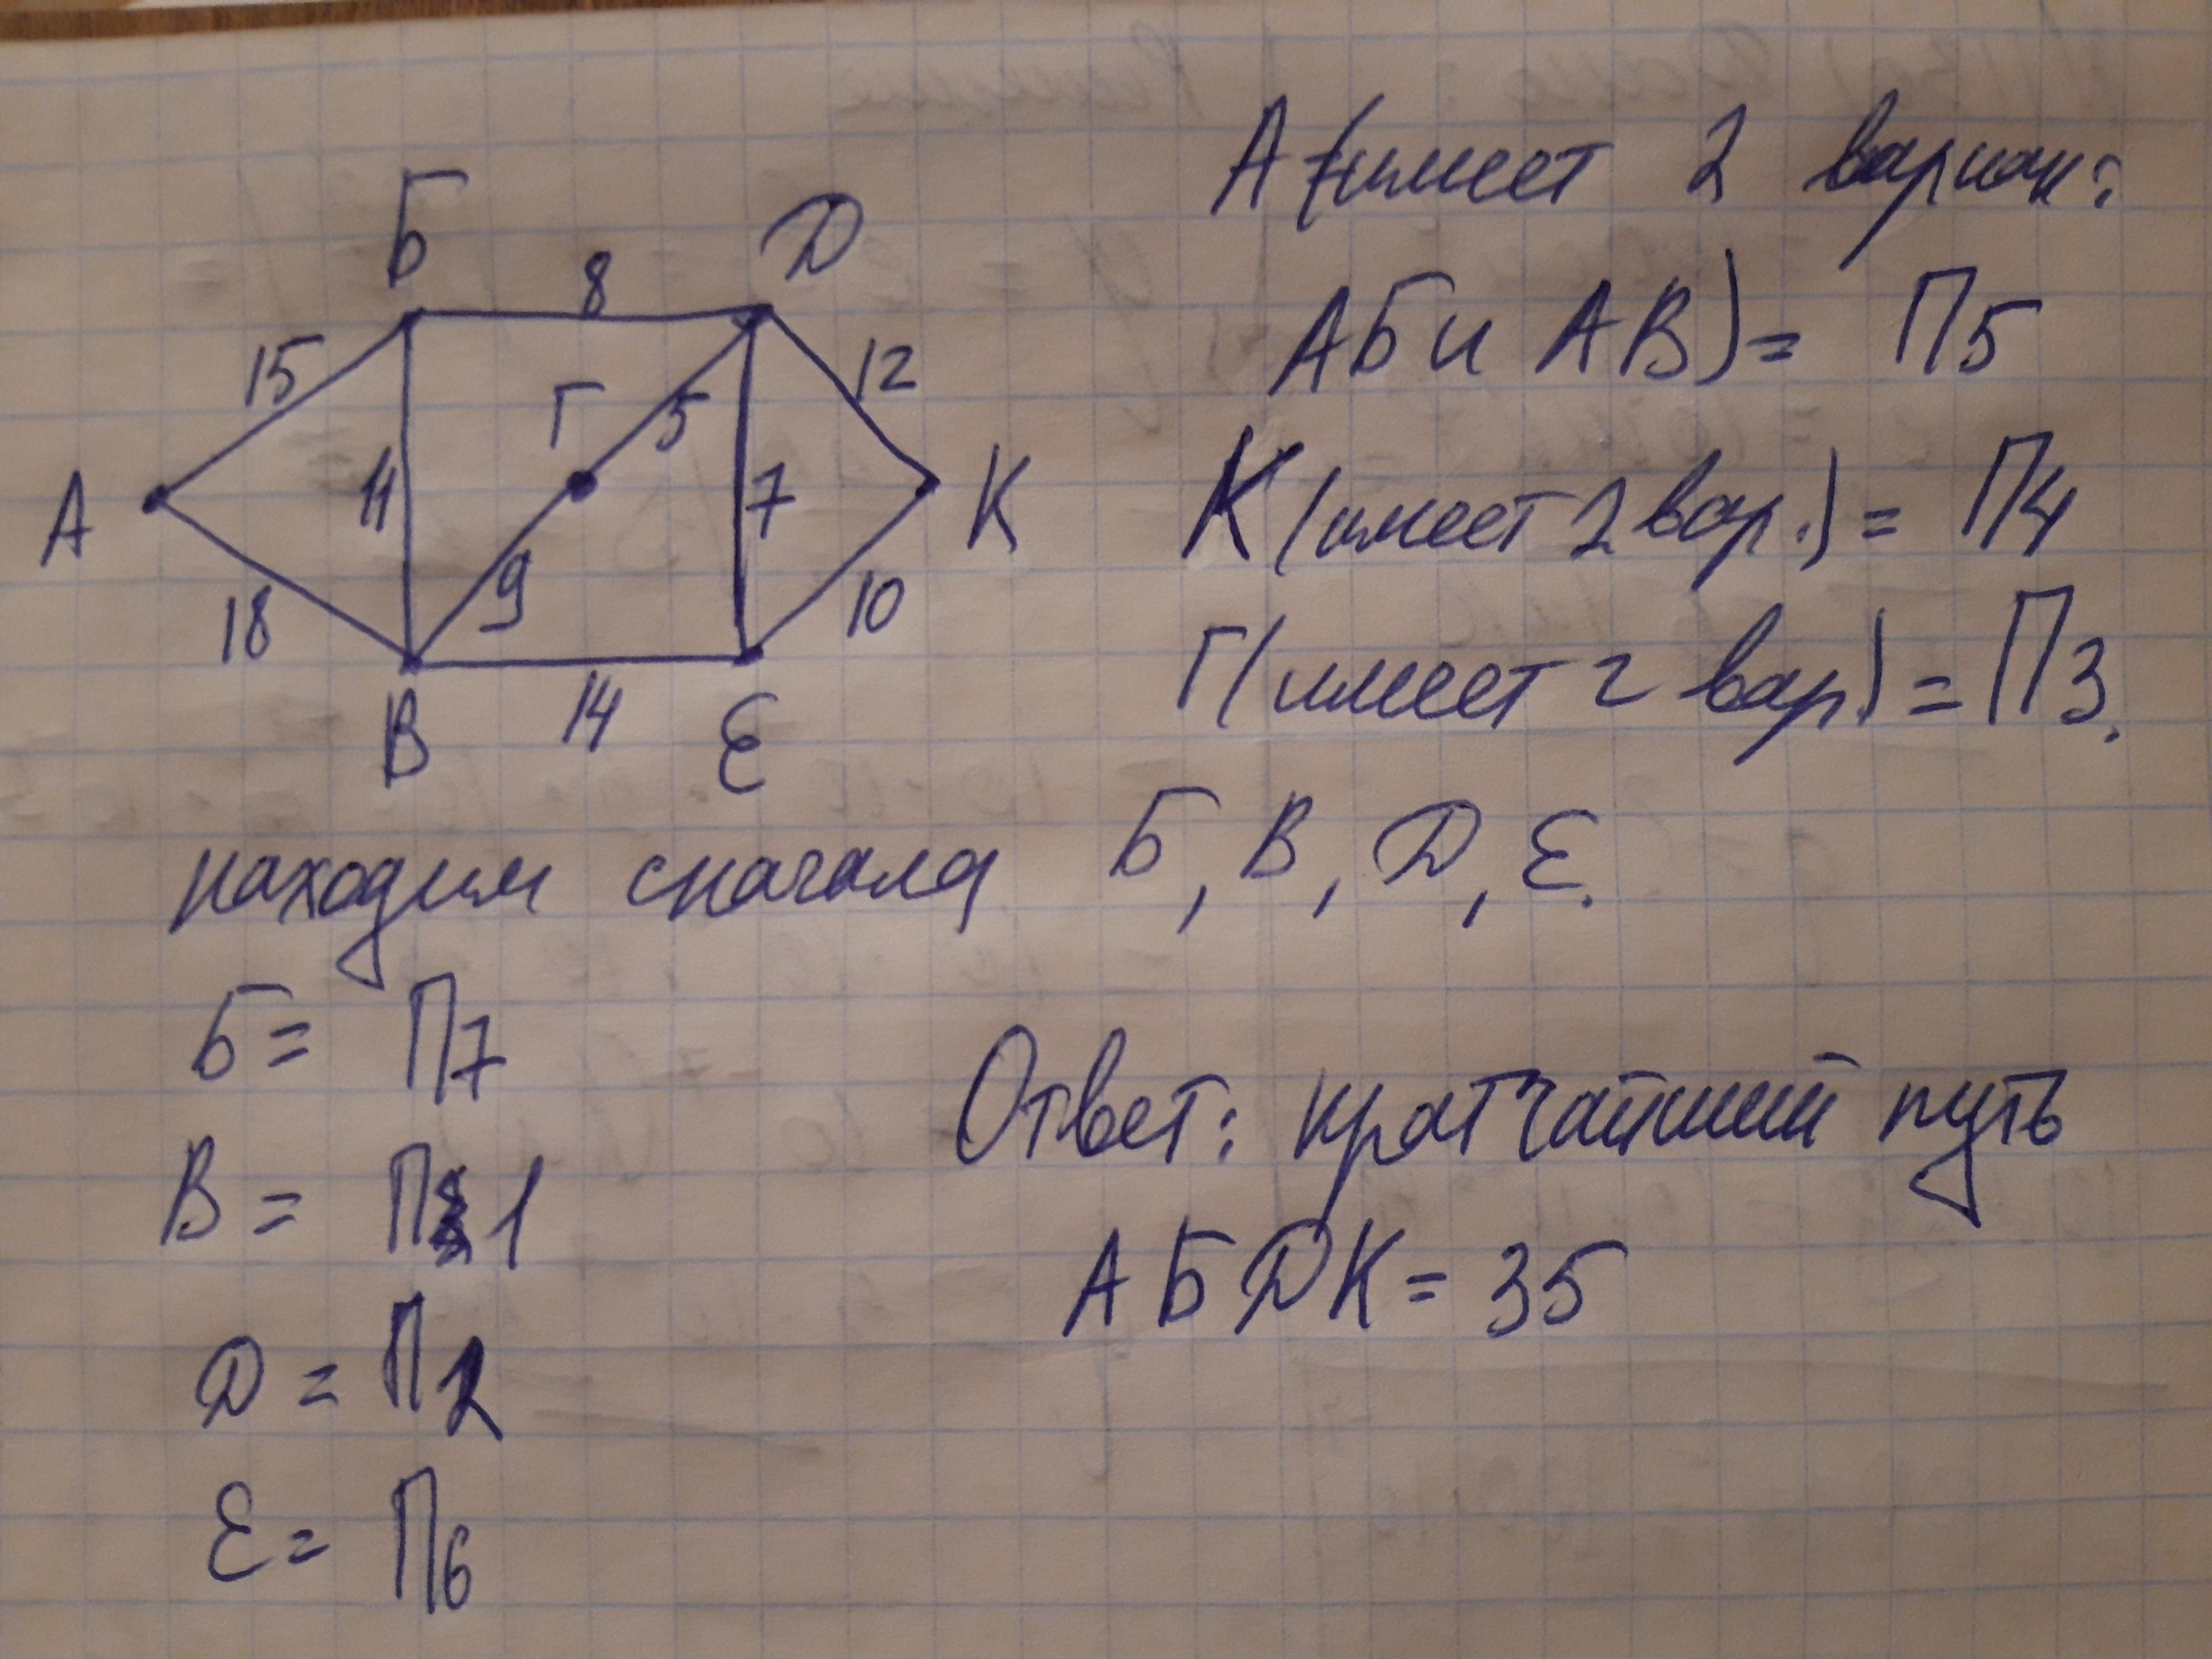 Б Д
8
15 12
Г 5
А 11 7 К
9
18 10
В 14 Е
А (имеет 2 вариан:
АБ и АВ) = П5
К (имеет 2 вар.) = П4
Г (имеет 2 вар) = П3.
находим сначала Б, В, Д, Е.
Б = П7
В = П 1
Д = П2
Е = П6
Ответ: кратчайший путь
АБДК = 35